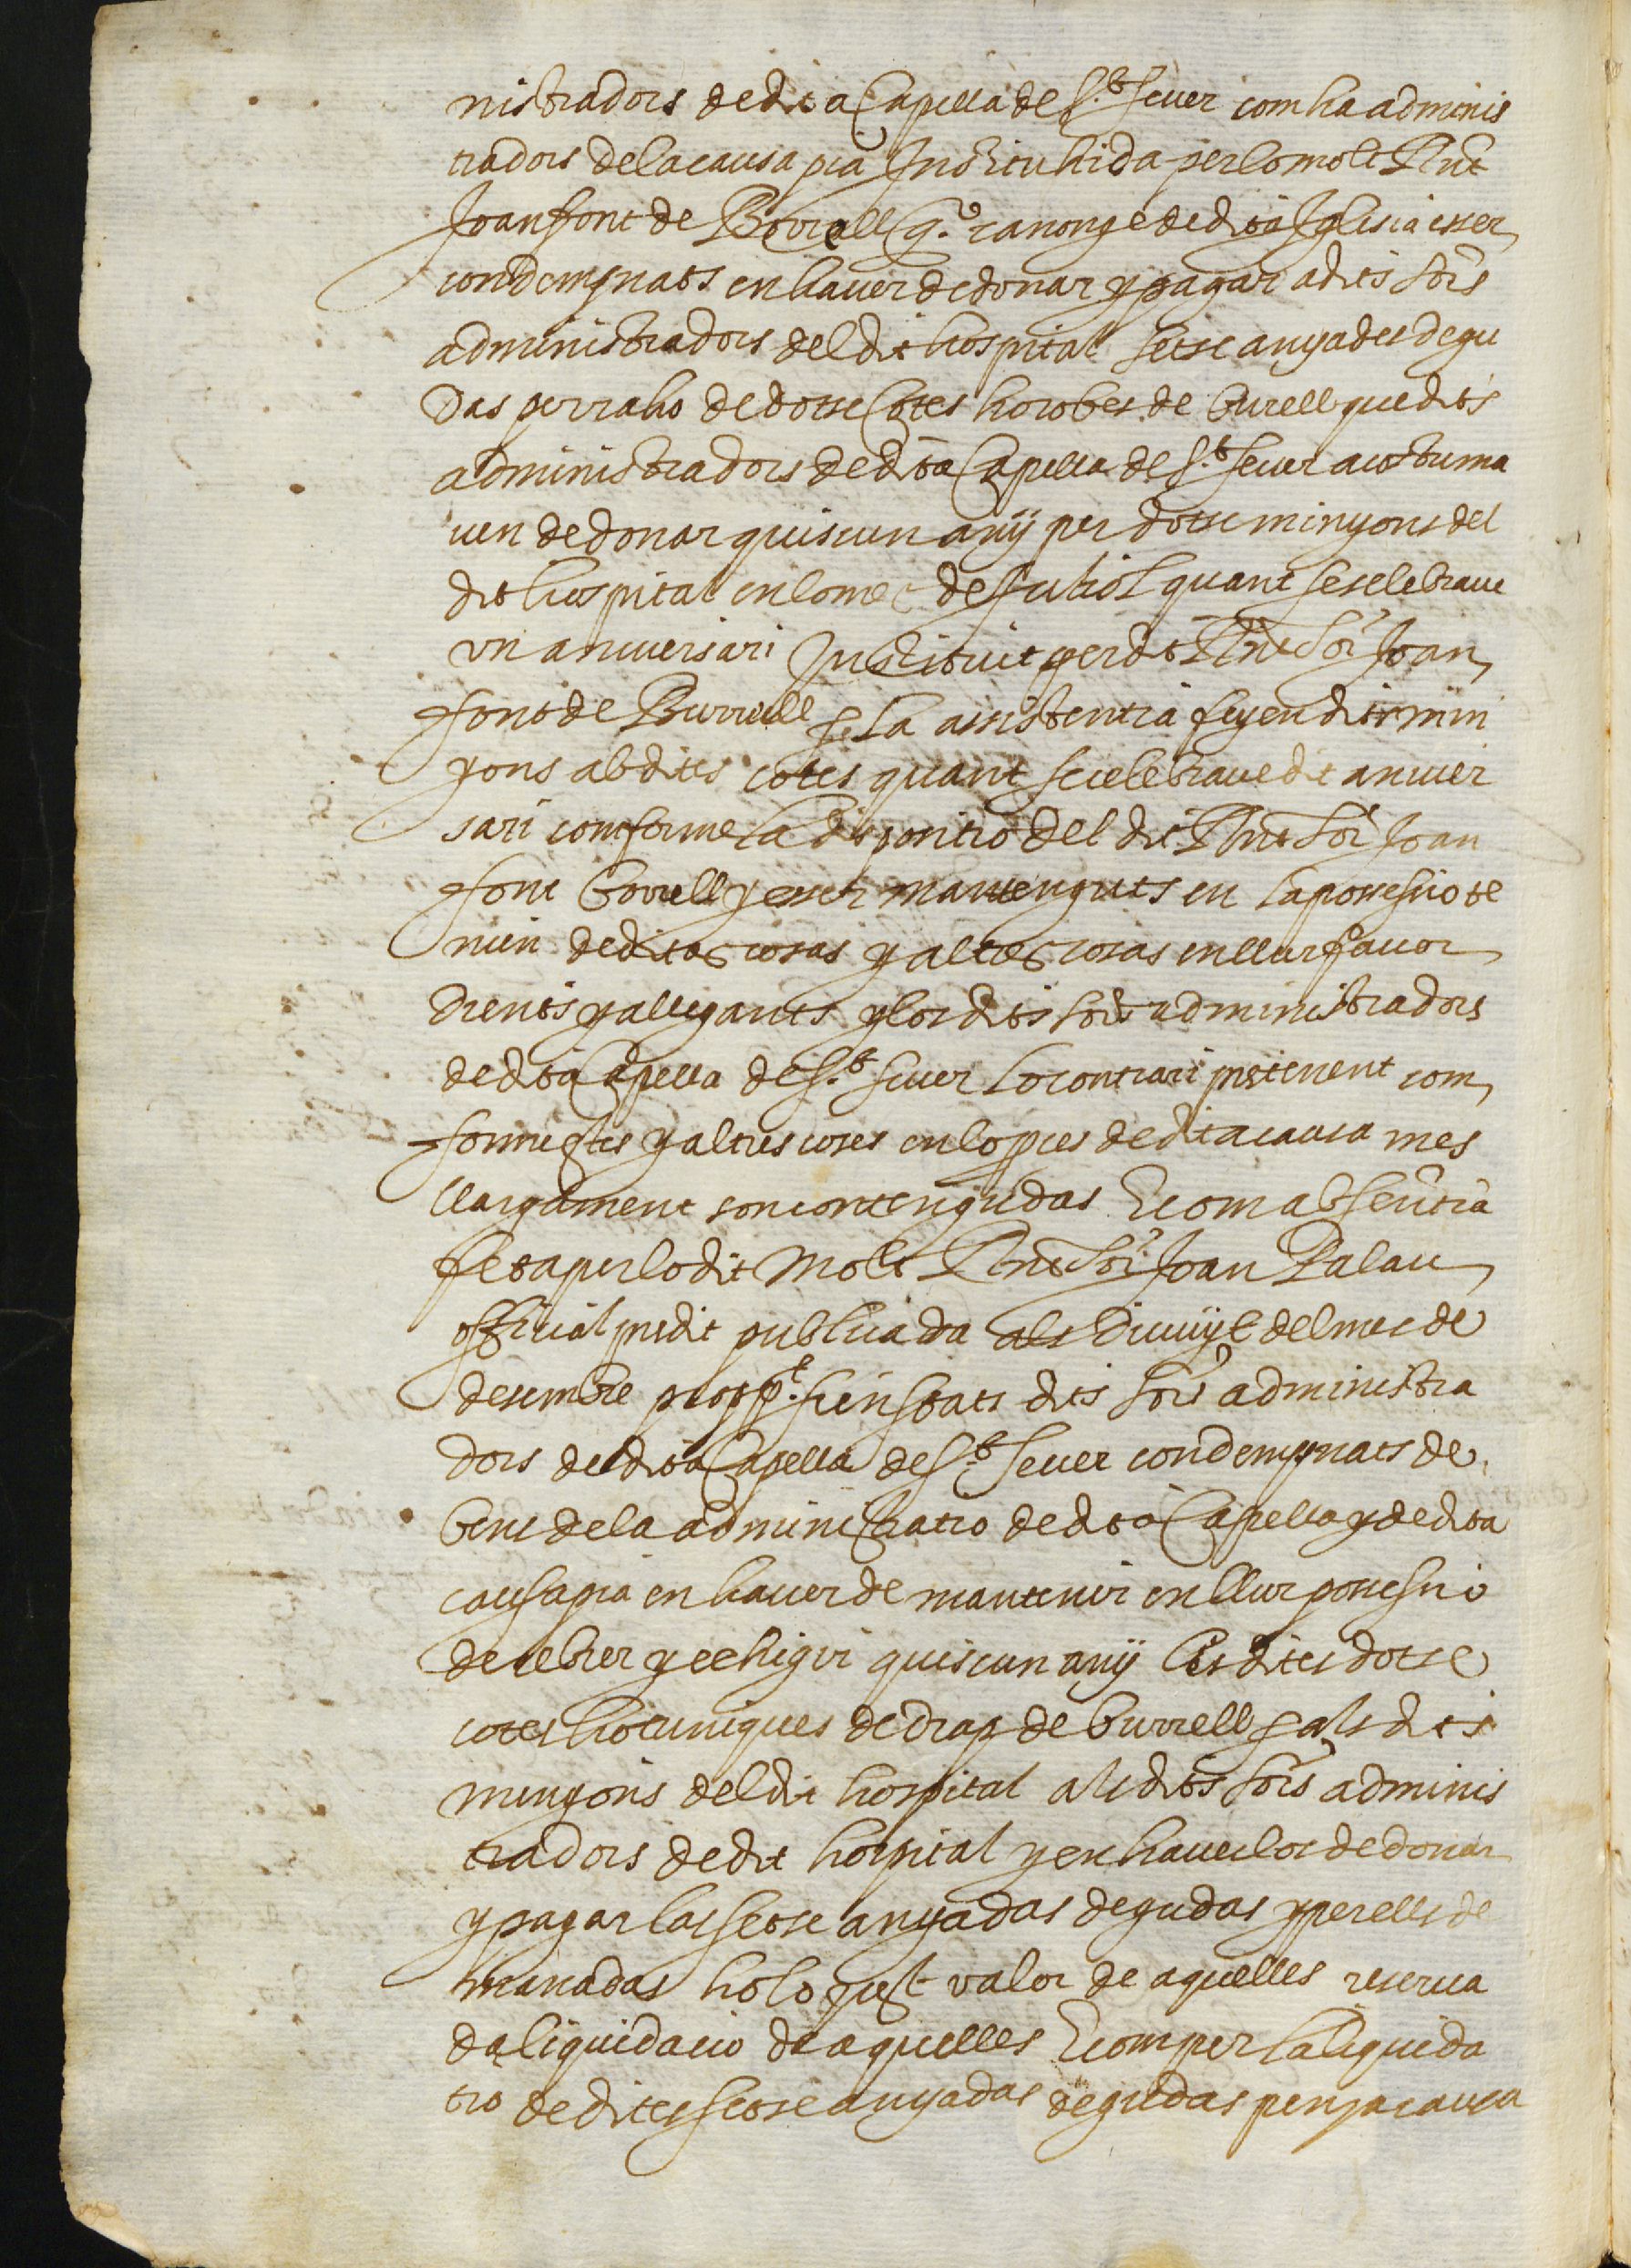 nistradors de dita Capella de S.t Sever com ha adminis
tradors de la causa pia Instituhida per lo molt Rnt
Joan font de Borrell q.o canonge de dita Iglesia esser
condempnats en haver de donar y pagar a dits Sors
administradors del dit hospital setse anyades degu
das per raho de dotse cotes ho robes de burell que dits
administradors de dita Capella de S.t Sever acostuma
ven de donar quiscun any per dotse minyons del
dit hospital en lo mes de Juliol quant se selebrave
vn aniversari Instituit per dit Rnt Sor Joan
font de Burrell y la assistentia feyen dits min
yons ab dites cotes quant se celebrave dit aniver
sari comforme la dispositio del dit Rnt Sor Joan
font Borrell y esser mantenguts en la possessio te
nien de ditas cosas y altes cosas en llur favor
dients y allegants y los dits Sors administradors
de dita Capella de S.t Sever lo contrari pretenent com
forme stes y altres coses en lo proces de dita causa mes
llargament son contengudas E com ab sentia
feta per lo dit Molt Rnt Sor Joan Palau
official predit publicada als divuyt del mes de
desembre prop p.t sien stats dits Sors administra
dors de dita Capella de S.t Sever condempnats de
bens de la administratio de dita Capella y de dita
causa pia en haver de mantenir en llur possessio
de rebrer y echigir quiscun any les dites dotse
cotes ho tuniques de drap de burrell p als dits
minyons del dit hospital als dits Sors adminis
tradors de dit hospital y en haverlos de donar
y pagar las setse anyadas degudas y per ells de
manadas ho lo just valor de aquelles reserva
da liquidacio de aquelles E com per la liquida
tio de dites setse anyadas degudas penja causa